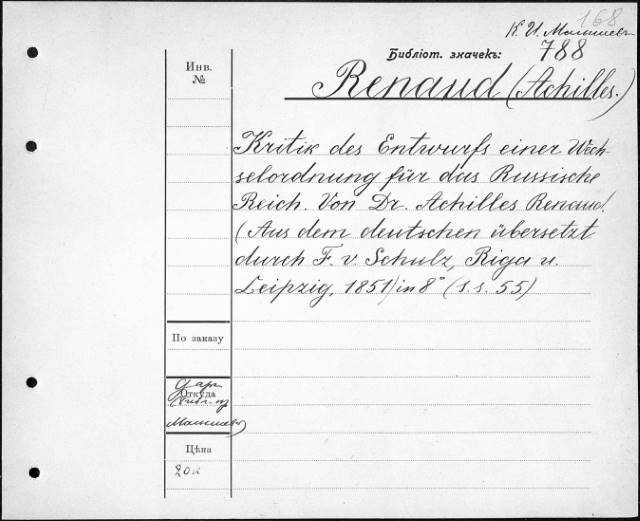 168
К. И. Малышевъ
Библіот. значекъ: 788
Инв.
№
Renaud (Achilles.)
Kritik des Entwurfs einer Wech-
selordnung für das Russische
Reich. Von Dr. Achilles Renaud.
(Aus dem deutschen übersetzt
durch F. v. Schulz, Riga u.
Leipzig, 1851) in 8° (s.s. 55)
По заказу
Откуда
Даръ
Малышевъ
Цѣна
20к